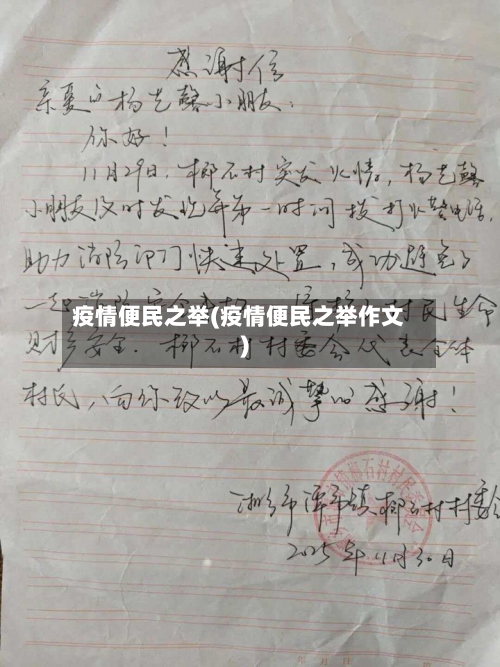 感谢信
亲爱的杨艺馨小朋友:
你好!
11月29日,椰石村突发火情。杨艺馨
小朋友及时发现并第一时间拨打火警电话,
助力消防部门快速处置,成功避免了
一起消防安全
疫情便民之举(疫情便民之举作文
)
村民生命
财产安全。椰石村村委会代表全体
村民,向你致以最诚挚的感谢!
村委会
2025年11月30日